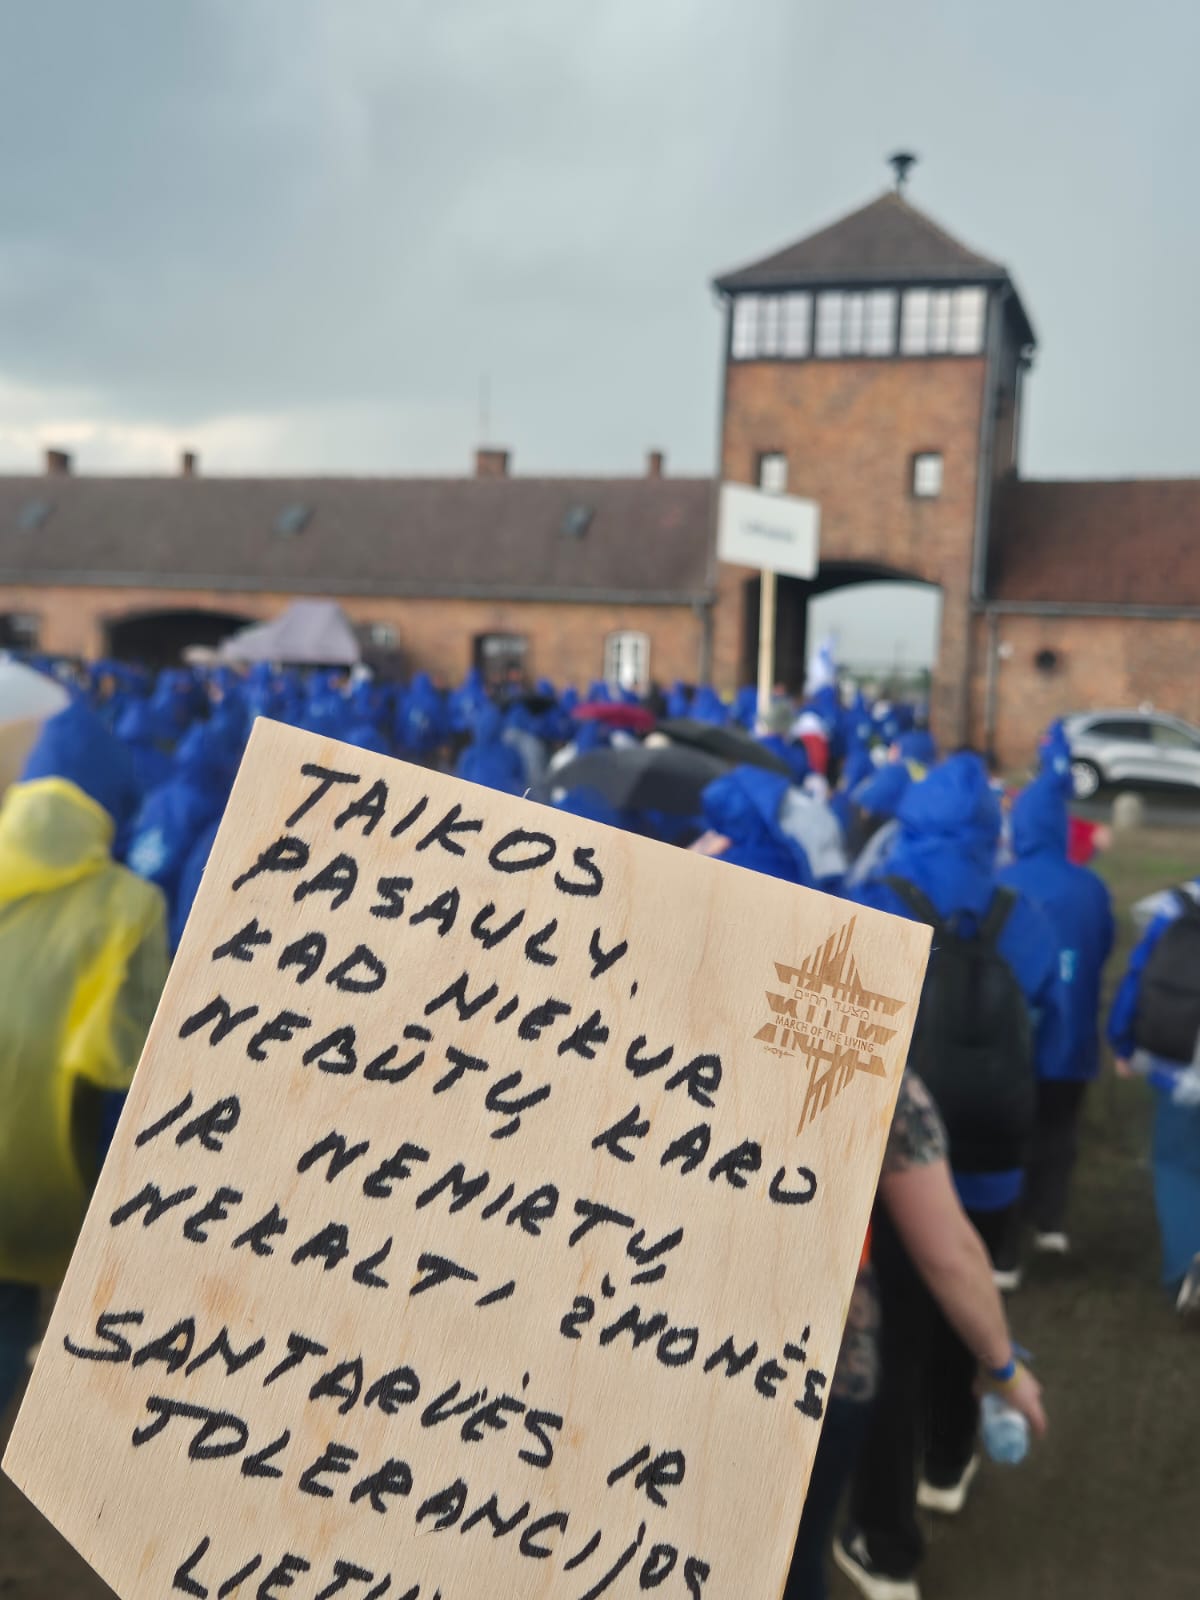 TAIKOS
PASAULY.
KAD NIEKUR
NEBŪTŲ KARO
IR NEMIRTŲ
NEKALTI ŽMONĖS
SANTARVĖS IR
TOLERANCIJOS
מצעד החיים
MARCH OF THE LIVING